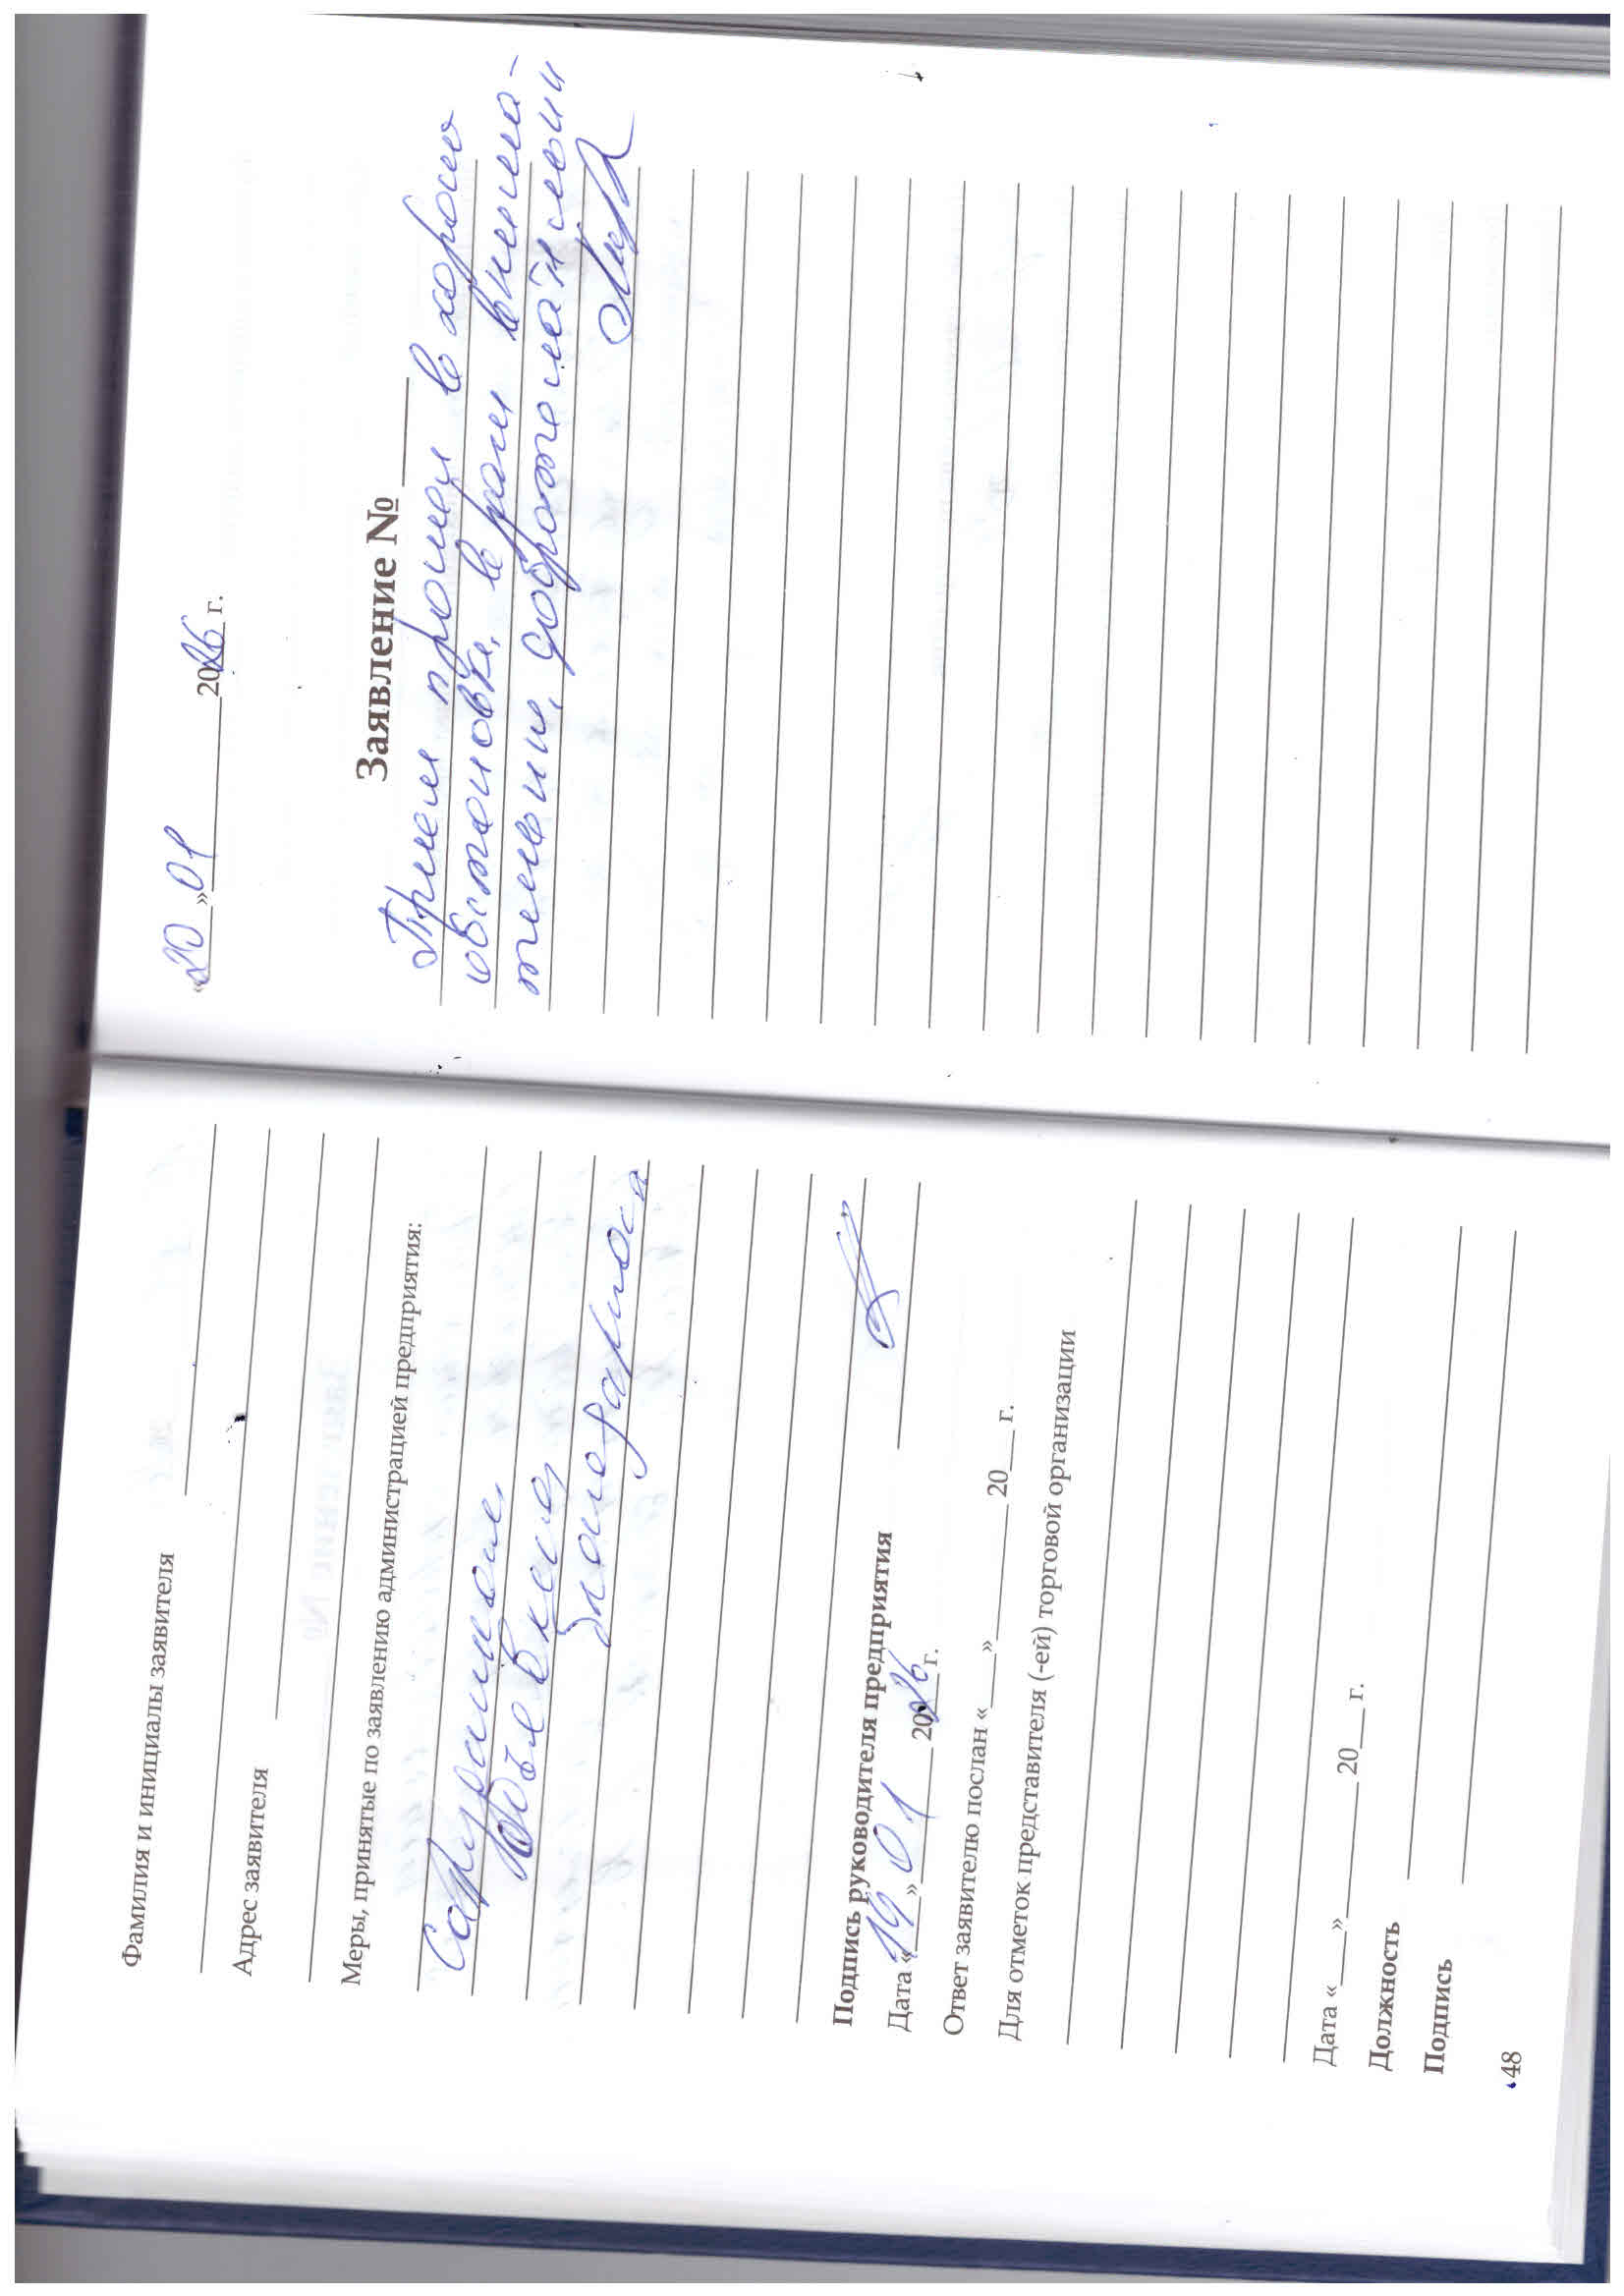 Фамилия и инициалы заявителя
Адрес заявителя
Меры, принятые по заявлению администрацией предприятия:
Сотрудникам
объявлена
благодарность
Подпись руководителя предприятия
Дата «19» 01 2026 г.
Ответ заявителю послан «___»________ 20___ г.
Для отметок представителя (-ей) торговой организации
Дата «___»________ 20___ г.
Должность
Подпись
48
«20» 01 2026 г.
Заявление № ____
Прием прошел в хорошей
обстановке, врачи внима-
тельные, доброжелательные